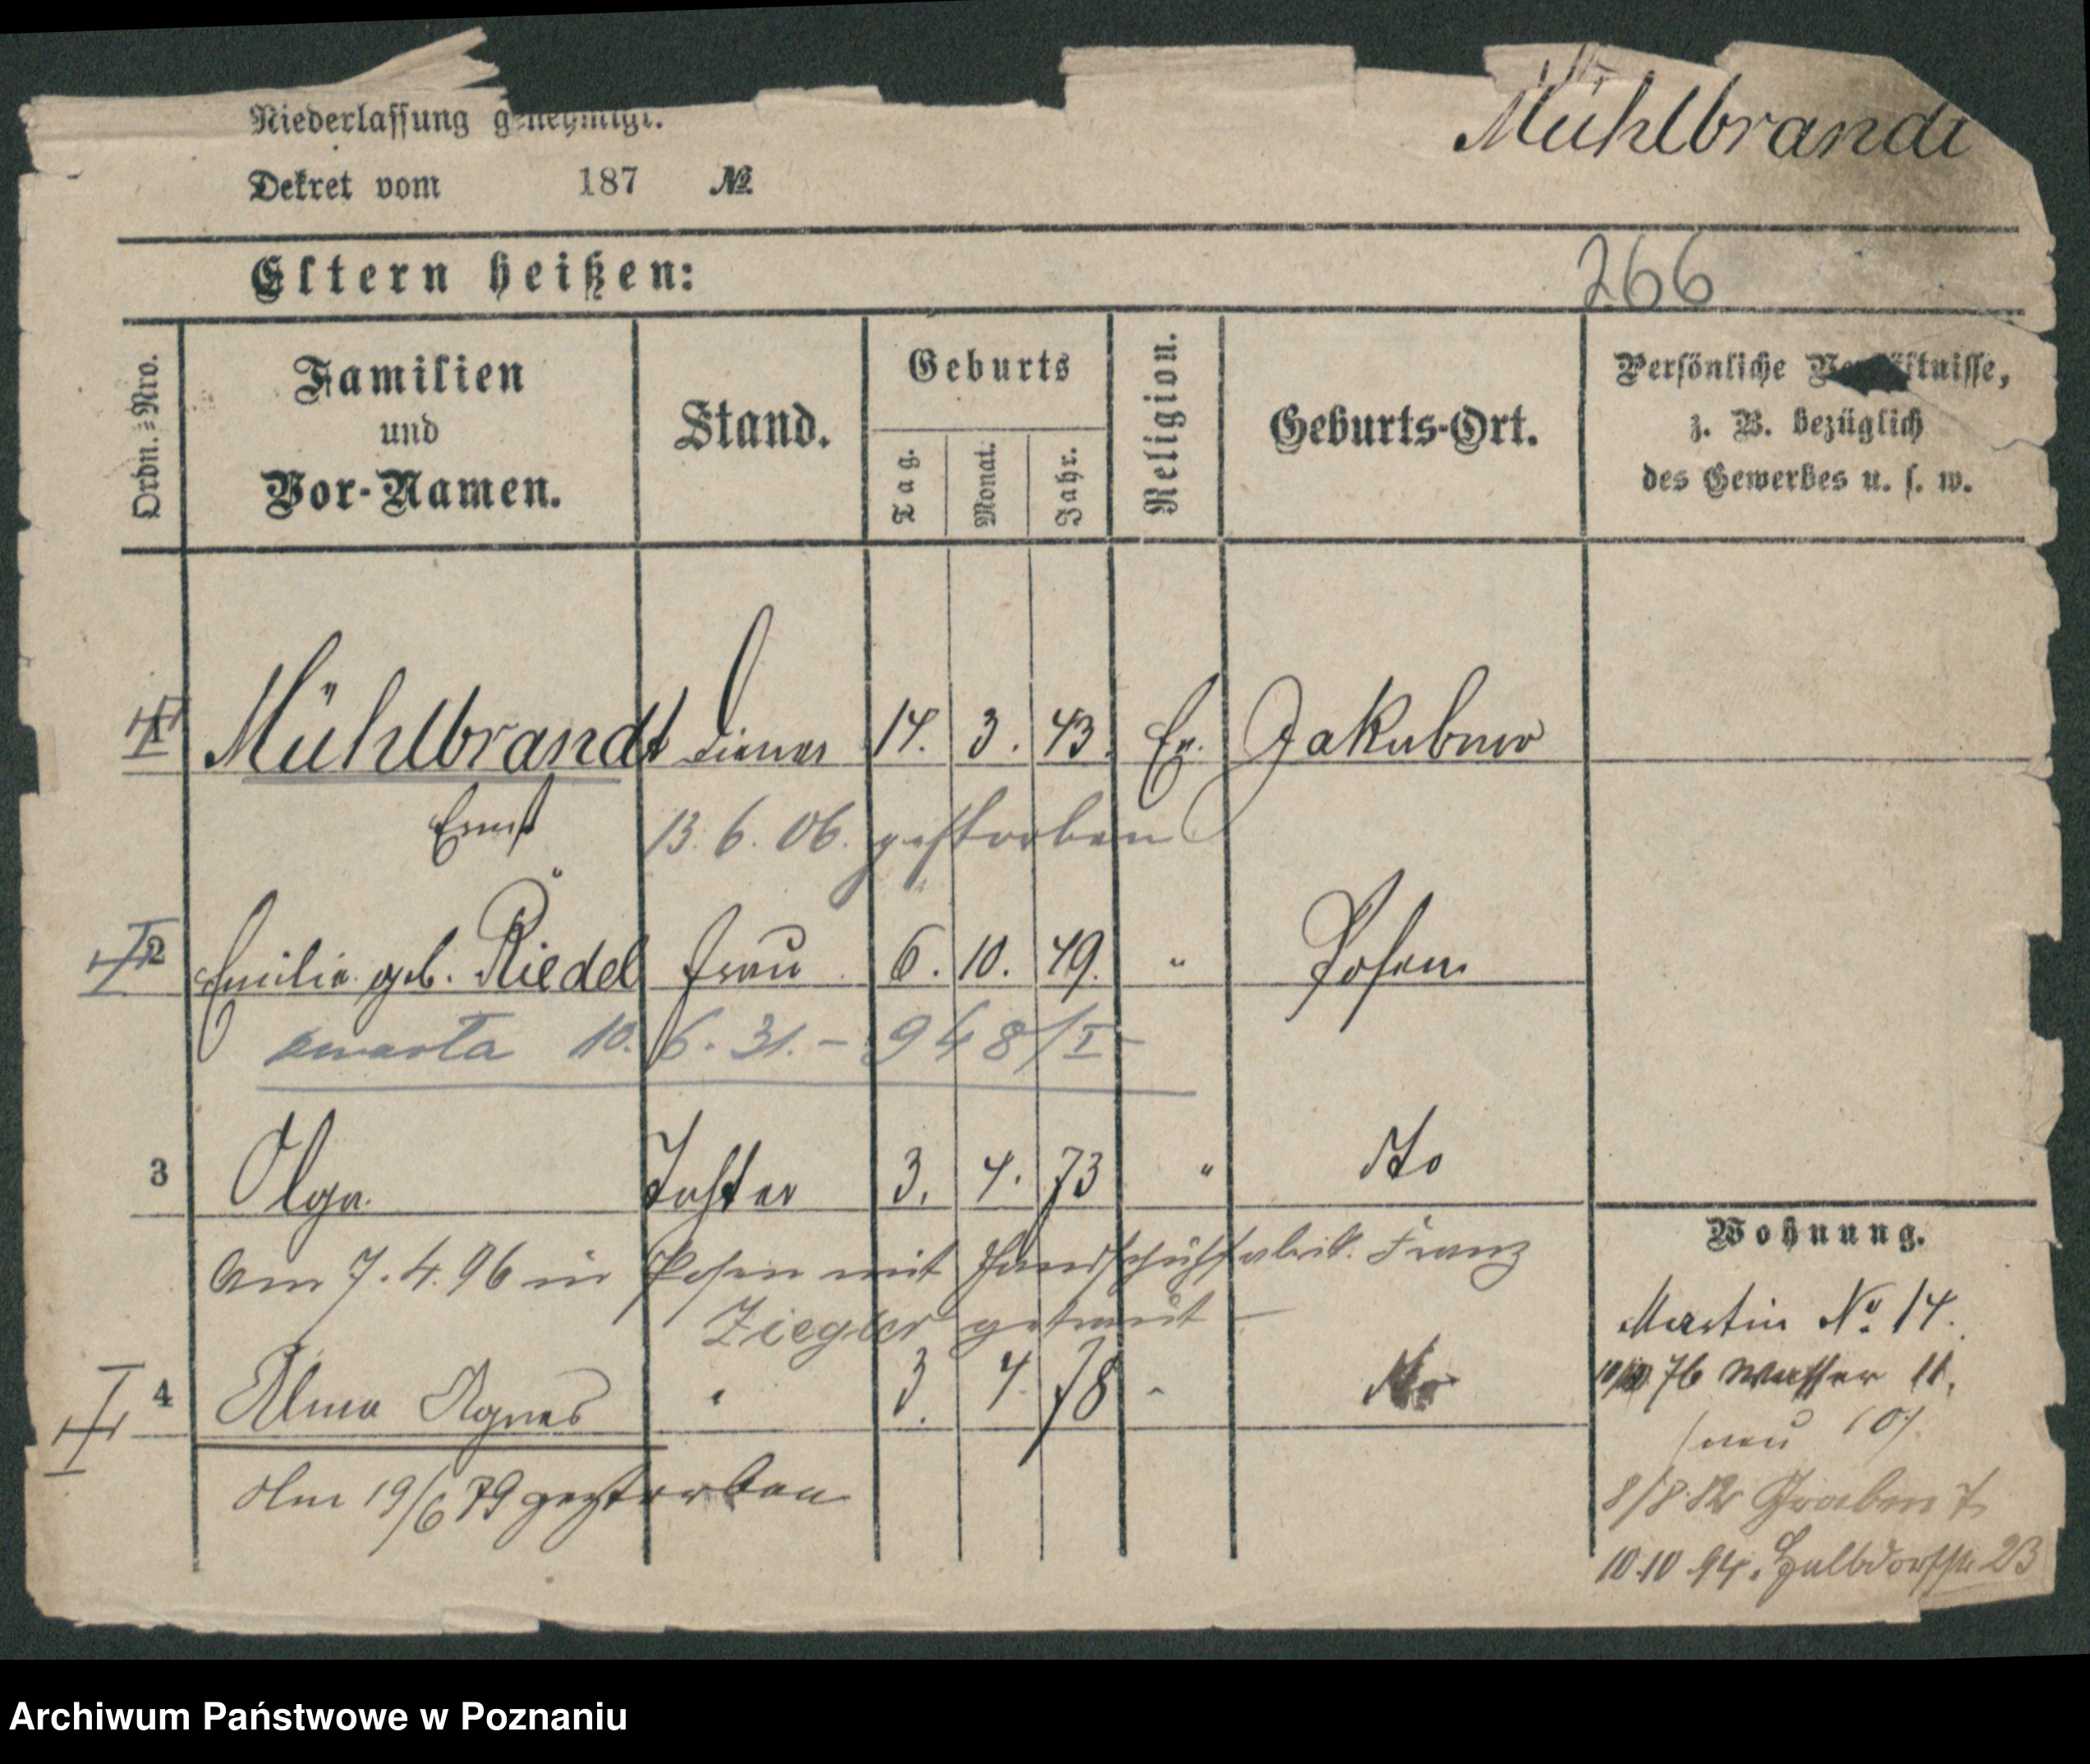 Niederlassung genehmigt.
Mühlbrandt
Dekret vom 187 №
Eltern heißen:
266
Ordn.=Nro.
Familien
und
Vor-Namen.
Stand.
Geburts
Tag.
Monat.
Jahr.
Religion.
Geburts-Ort.
Persönliche Verhältnisse,
z. B. bezüglich
des Gewerbes u. s. w.
1 Mühlbrandt Diener 14. 3. 43. Ev. Jakubowo
Ernst
13. 6. 06. gestorben
2 Emilie geb. Riedel Frau 6. 10. 49. " Posen
zmarła 10. 6. 31. – 948/I –
3 Olga Tochter 3. 4. 73 " do
Am 7. 4. 96 in Posen mit Handschuhfabrik. Franz
Ziegler getraut –
4 Alma Agnes " 3. 4. 78 " do
Am 19/6 79 gestorben
Wohnung.
Martin No. 14.
76 Wasser 11.
(neu 10).
8/8 82 Graben 7
10.10.94. Halbdorfstr 23
Archiwum Państwowe w Poznaniu